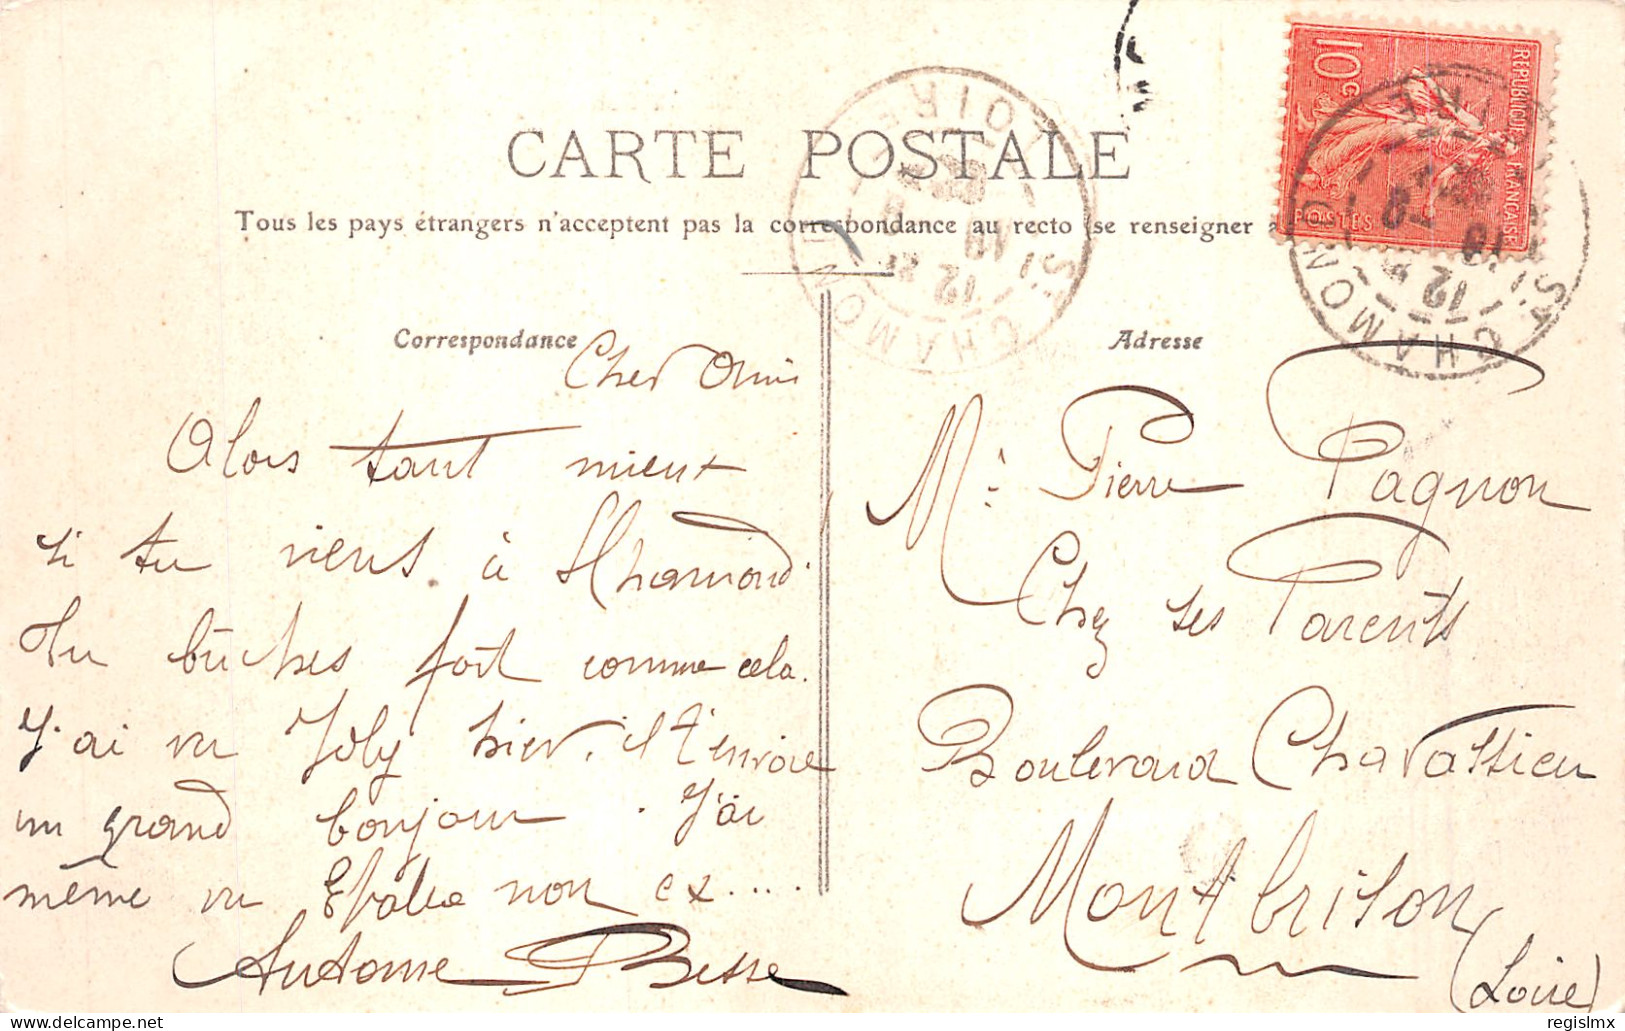 CARTE POSTALE
Tous les pays étrangers n'acceptent pas la correspondance au recto (se renseigner
10 c
REPUBLIQUE FRANÇAISE
POSTES
ST CHAMOND
LOIRE
12
10
ST CHAMOND
LOIRE
12
10
Correspondance
Cher Ami
Alors tant mieux
si tu viens à St Chamond
Tu bûches fort comme cela.
J'ai vu Joly hier, il t'envoie
un grand bonjour. J'ai
même vu non ex....
Antoine Besse
Adresse
Mr Pierre Pagnon
Chez ses Parents
Boulevard Chavassieu
Montbrison
(Loire)
delcampe.net
regislmx